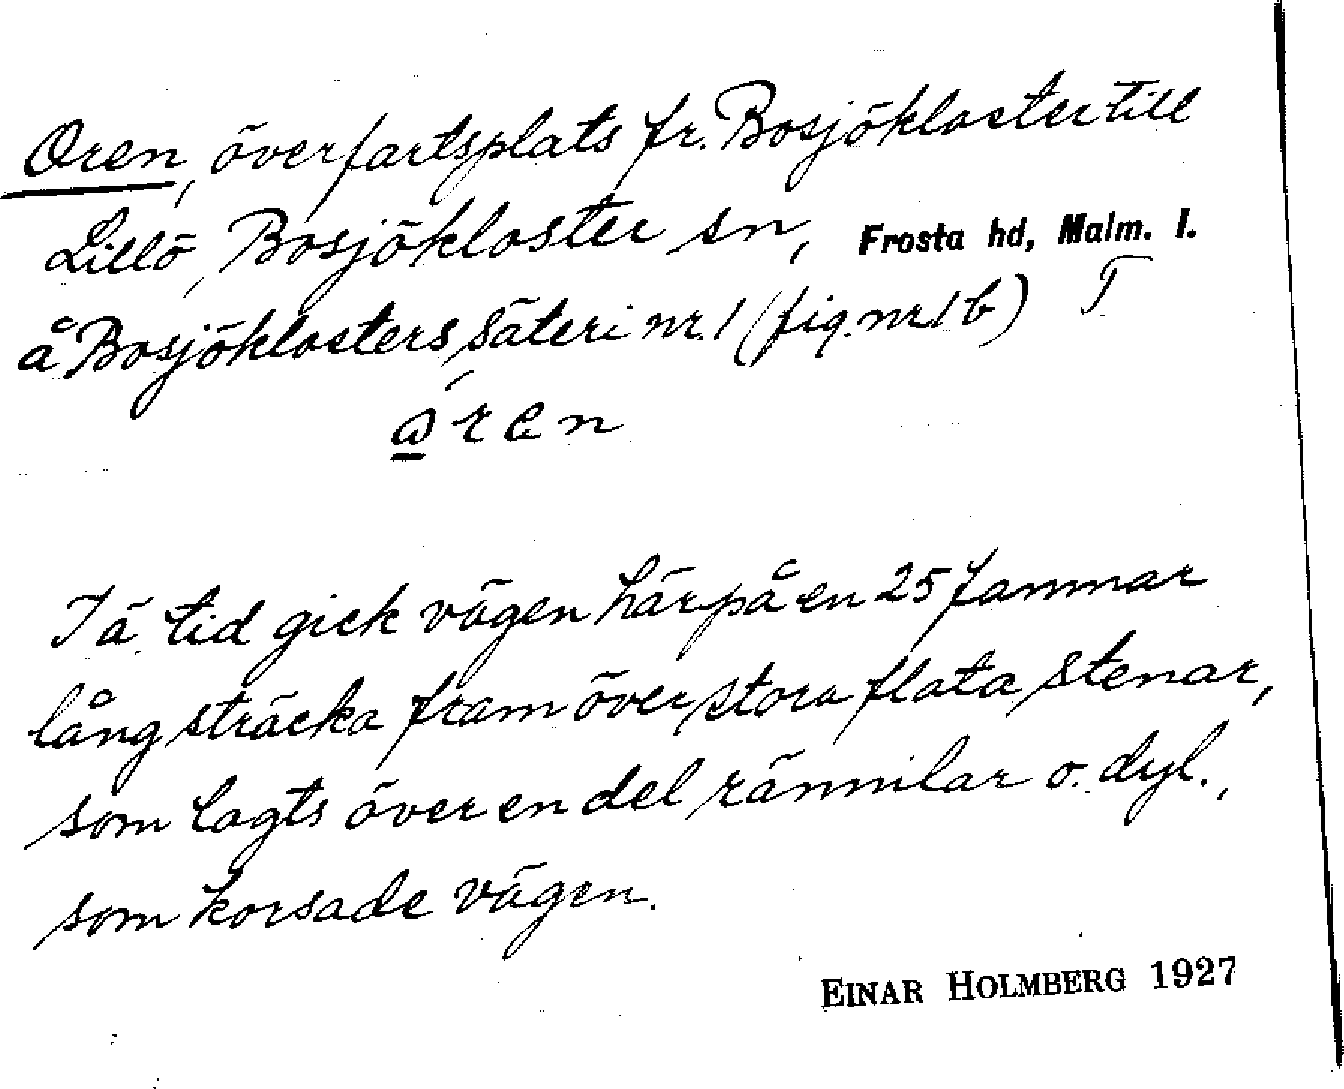 Oren, överfartsplats fr. Bosjökloster till
Lillö, Bosjökloster sn, Frosta hd, Malm. l.
å Bosjöklosters säteri nr. 1 (fig. nr 1 b) T
Tä tid gick vägen här på en 25 famnar
lång sträcka fram över stora flata stenar,
som lagts över en del rännilar o. dyl.,
som korsade vägen.
EINAR HOLMBERG 1927